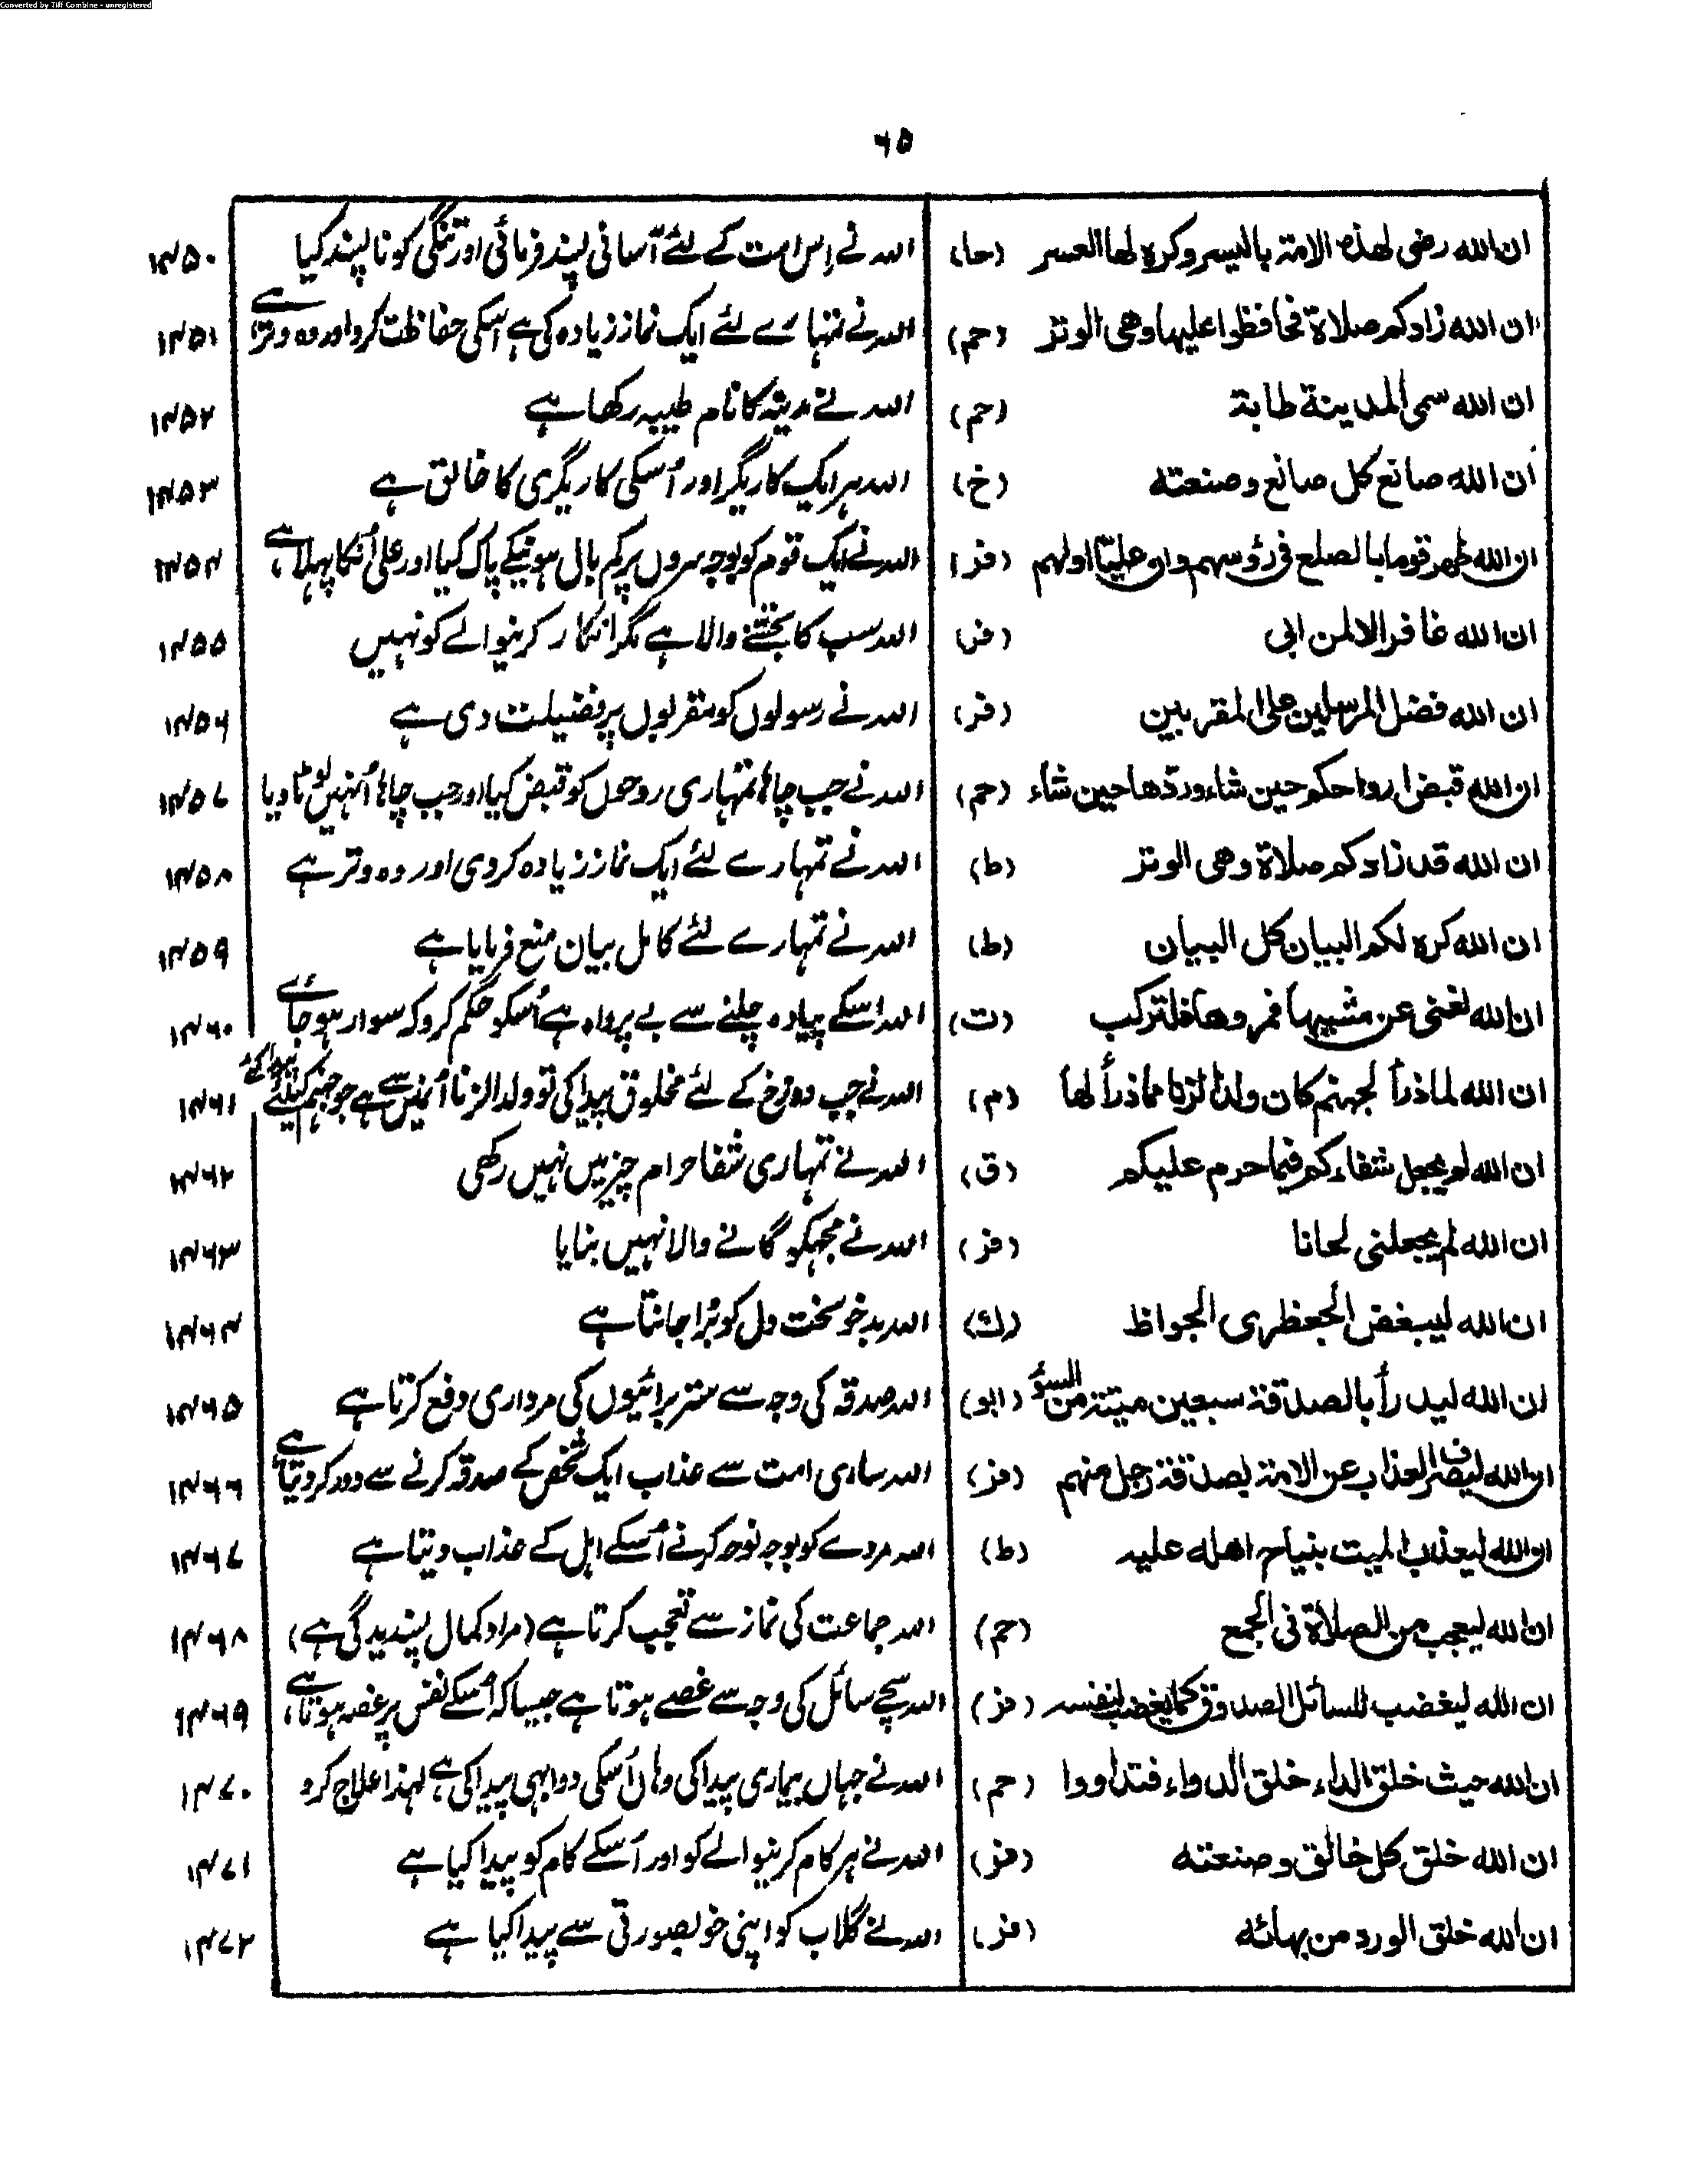 Converted by Tiff Combine - unregistered
٦٥
ان الله رضی لهذه الامة بالیسر وکره لها العسر (حا) اللہ نے اِس امت کے لئے آسانی پسند فرمائی اور تنگی کو ناپسند کیا ۱۴۵۰
ان الله زادکم صلاة فحافظوا علیها وهی الوتر (حم) اللہ نے تمہارے لئے ایک نماز زیادہ کی ہے اسکی حفاظت کرو اور وہ وتر ہے ۱۴۵۱
ان الله سمی المدینة طابة (حم) اللہ نے مدینہ کا نام طیبہ رکھا ہے ۱۴۵۲
ان الله صانع کل صانع وصنعته (خ) اللہ ہر ایک کاریگر اور اُسکی کاریگری کا خالق ہے ۱۴۵۳
ان الله طهر قوما بالصلع فی رؤسهم وان علیّا اولهم (فر) اللہ نے ایک قوم کو بوجہ سروں پر کم بال ہونیکے پاک کیا اور علی اُنکا پہلا ہے ۱۴۵۴
ان الله غافر الا لمن ابی (فر) اللہ سب کا بخشنے والا ہے مگر انکار کرنیوالے کو نہیں ۱۴۵۵
ان الله فضل المرسلین علی المقربین (فر) اللہ نے رسولوں کو مقربوں پر فضیلت دی ہے ۱۴۵۶
ان الله قبض ارواحکم حین شاء وردّها حین شاء (حم) اللہ نے جب چاہا تمہاری روحوں کو قبض کیا اور جب چاہا اُنہیں لوٹا دیا ۱۴۵۷
ان الله قد زادکم صلاة وهی الوتر (ط) اللہ نے تمہارے لئے ایک نماز زیادہ کردی اور وہ وتر ہے ۱۴۵۸
ان الله کره لکم البیان کل البیان (ط) اللہ نے تمہارے لئے کامل بیان منع فرمایا ہے ۱۴۵۹
ان الله لغنی عن مشیها فمروها فلترکب (ت) اللہ اسکے پیادہ چلنے سے بے پرواہ ہے اُسکو حکم کرو کہ سوار ہو جائے ۱۴۶۰
ان الله لما ذرأ لجهنم کان ولد الزنا مما ذرأ لها (م) اللہ نے جب دوزخ کے لئے مخلوق پیدا کی تو ولد الزنا اُنمیں سے ہے جو جہنم کیلئے پیدا کئے ۱۴۶۱
ان الله لم یجعل شفاءکم فیما حرم علیکم (ق) اللہ نے تمہاری شفا حرام چیز میں نہیں رکھی ۱۴۶۲
ان الله لم یجعلنی لحانا (فر) اللہ نے مجھکو گانے والا نہیں بنایا ۱۴۶۳
ان الله لیبغض الجعظری الجواظ (ك) اللہ بدخو سخت دل کو بُرا جانتا ہے ۱۴۶۴
ان الله لیدرأ بالصدقة سبعین میتة من السؤ (ابو) اللہ صدقہ کی وجہ سے ستر برائیوں کی مرداری دفع کرتا ہے ۱۴۶۵
ان الله لیصرف العذاب عن الامة بصدقة رجل منهم (فر) اللہ ساری امت سے عذاب ایک شخص کے صدقہ کرنے سے دور کر دیتا ہے ۱۴۶۶
ان الله لیعذب المیت بنیاح اهله علیه (ط) اللہ مردے کو بوجہ نوحہ کرنے اُسکے اہل کے عذاب دیتا ہے ۱۴۶۷
ان الله لیعجب من الصلاة فی الجمع (حم) اللہ جماعت کی نماز سے تعجب کرتا ہے (مراد کمال پسندیدگی ہے) ۱۴۶۸
ان الله لیغضب للسائل الصدوق کما یغضب لنفسه (فر) اللہ سچے سائل کی وجہ سے غصے ہوتا ہے جیسا کہ اُسکے نفس پر غصہ ہوتا ہے ۱۴۶۹
ان الله حیث خلق الداء خلق الدواء فتداووا (حم) اللہ نے جہاں بیماری پیدا کی وہاں اُسکی دوا بھی پیدا کی ہے لہذا علاج کرو ۱۴۷۰
ان الله خلق کل خالق وصنعته (فر) اللہ نے ہر کام کرنیوالے کو اور اُسکے کام کو پیدا کیا ہے ۱۴۷۱
ان الله خلق الورد من بهائه (فر) اللہ نے گلاب کو اپنی خوبصورتی سے پیدا کیا ہے ۱۴۷۲